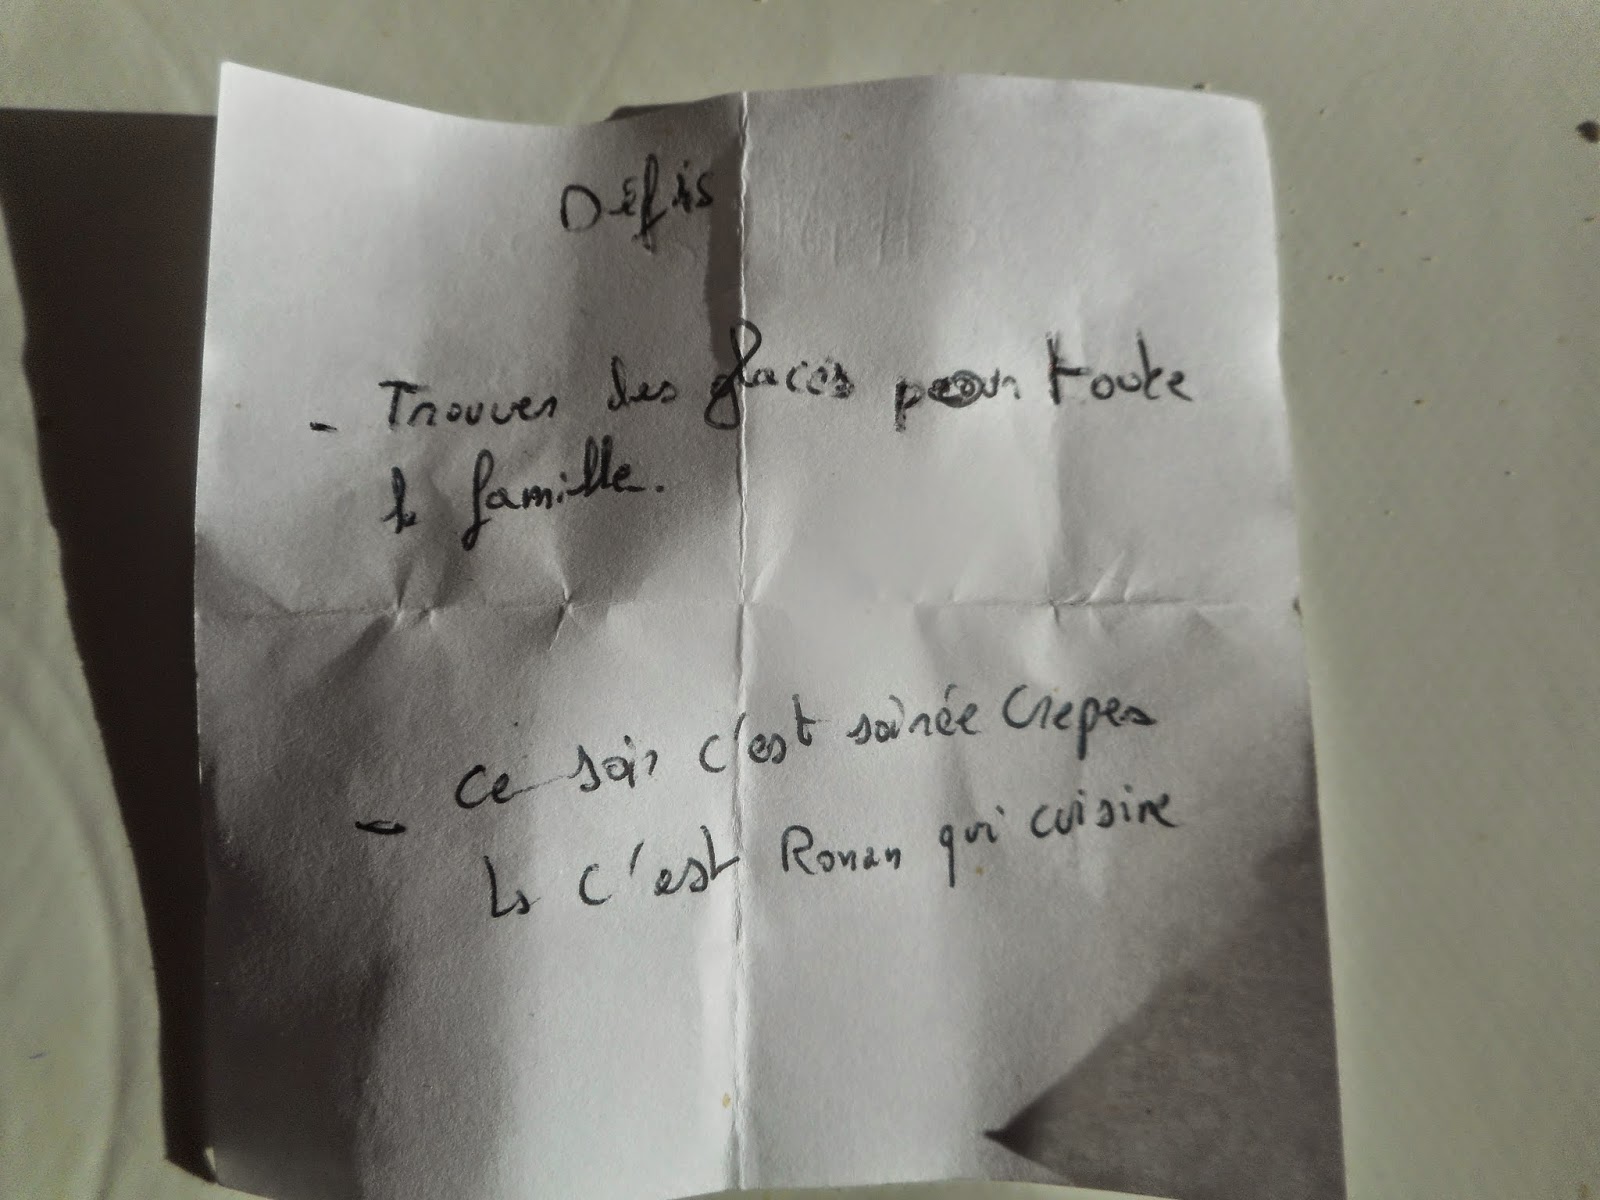 Défis
- Trouver des glaces pour toute
la famille.
- Ce soir c'est soirée Crepes
c'est Ronan qui cuisine